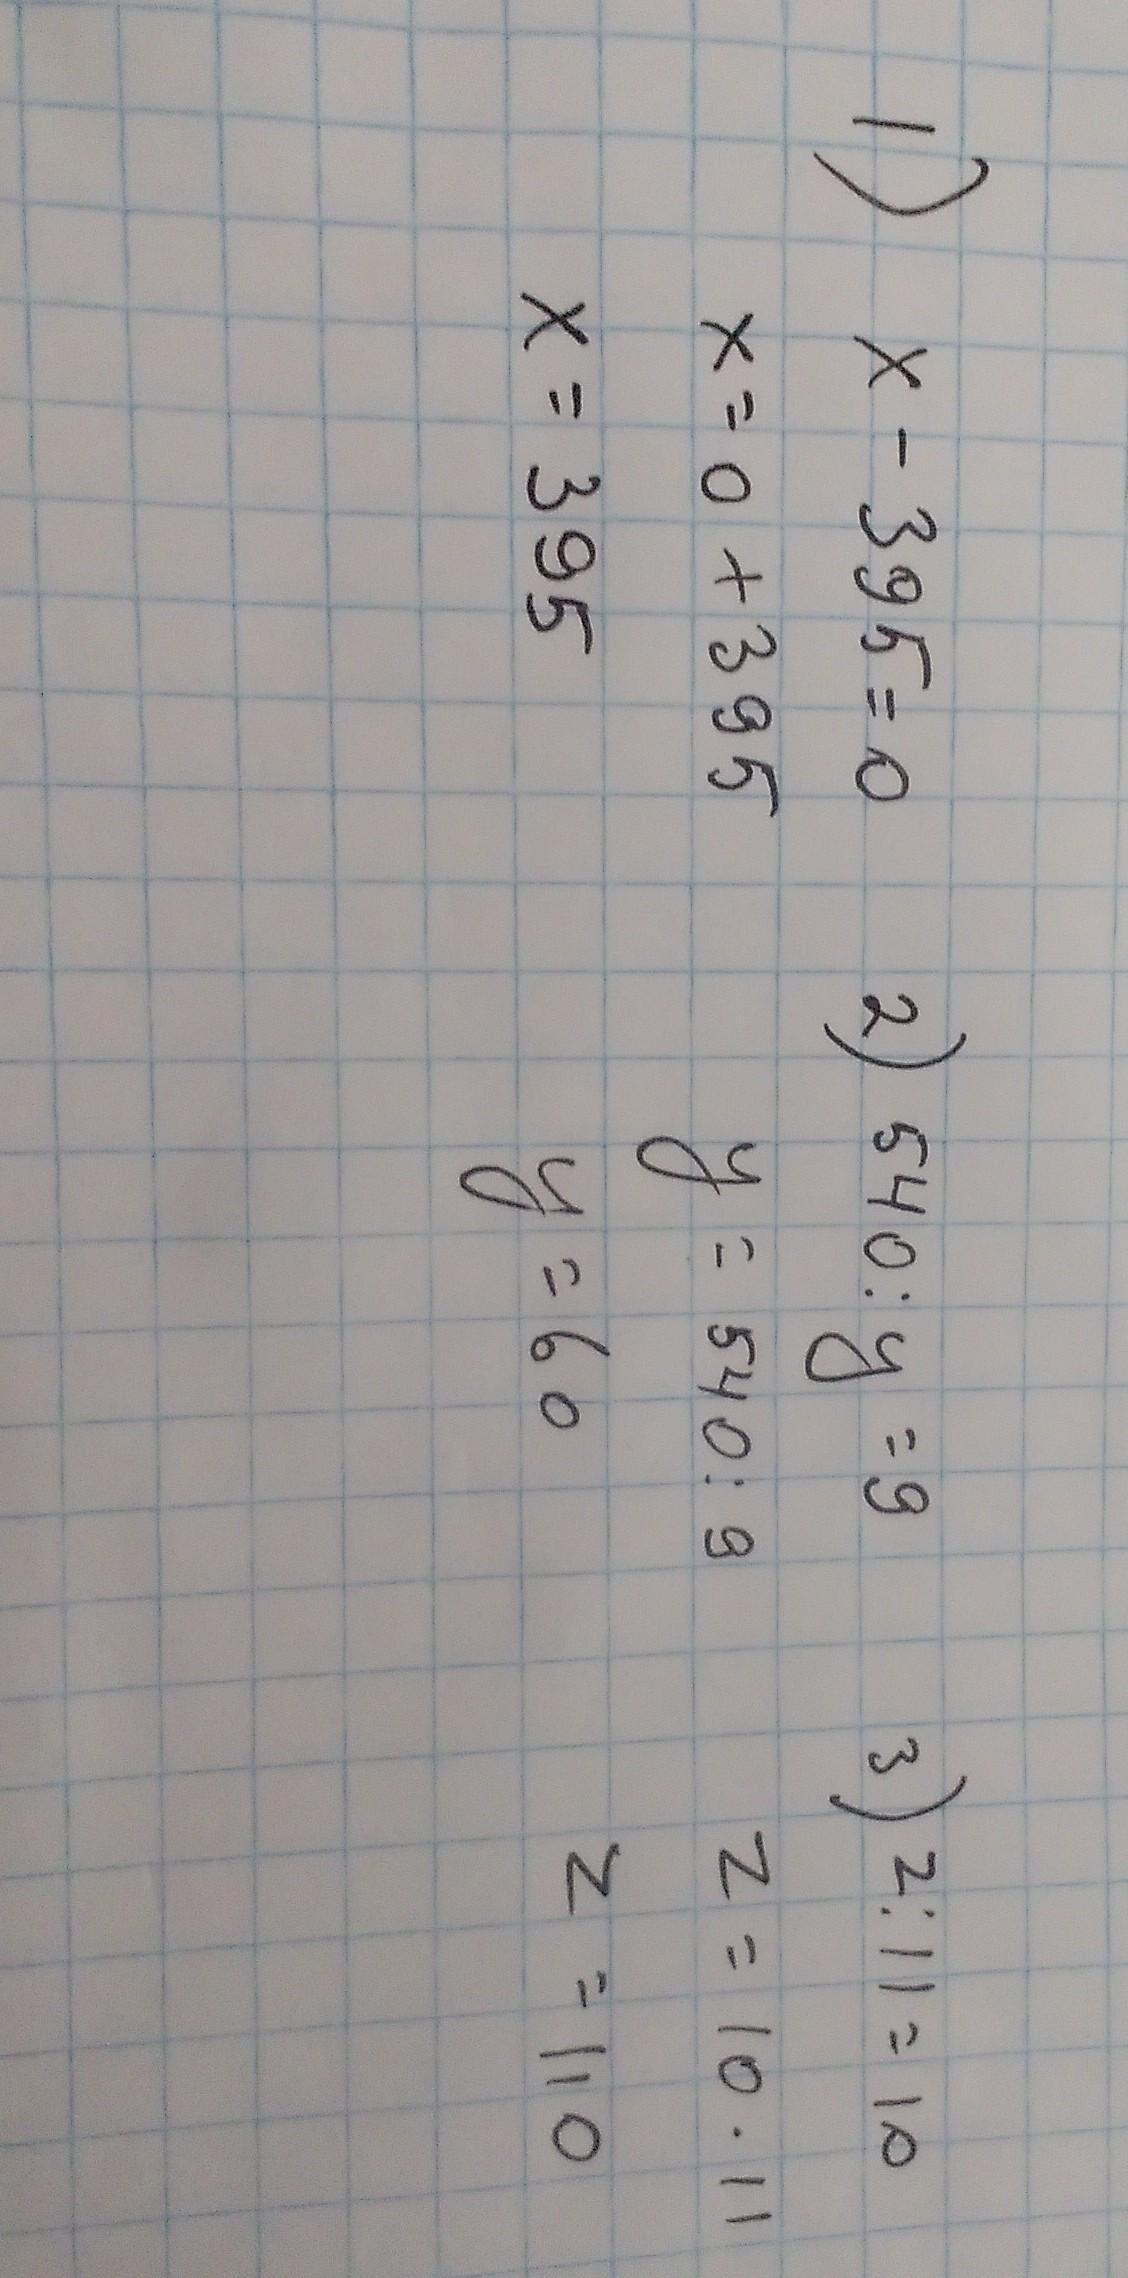 1) x - 395 = 0
x = 0 + 395
x = 395
2) 540 : y = 9
y = 540 : 9
y = 60
3) z : 11 = 10
z = 10 · 11
z = 110